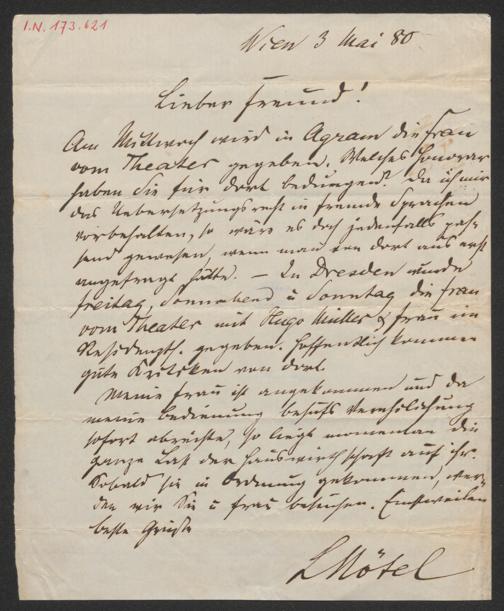 I.N. 173.621
Wien 3 Mai 80
Lieber Freund!
Am Mittwoch wird in Agram die Frau
vom Theater gegeben. Welches Honorar
haben Sie für dort bedungen? Da ich mir
das Uebersetzungsrecht in fremde Sprachen
vorbehalten, so wäre es doch jedenfalls pas-
send gewesen, wenn man von dort aus erst
angefragt hätte. – In Dresden wurde
Freitag, Sonnabend u Sonntag die Frau
vom Theater mit Hugo Müller & Frau im
Residenzth. gegeben. Hoffentlich kommen
gute Kritiken von dort.
Meine Frau ist angekommen und da
meine Bedienung behufs Verehelichung
sofort abreiste, so liegt momentan die
ganze Last der Hauswirthschaft auf ihr.
Sobald sie in Ordnung gekommen, wer-
den wir Sie u Frau besuchen. Einstweilen
beste Grüße